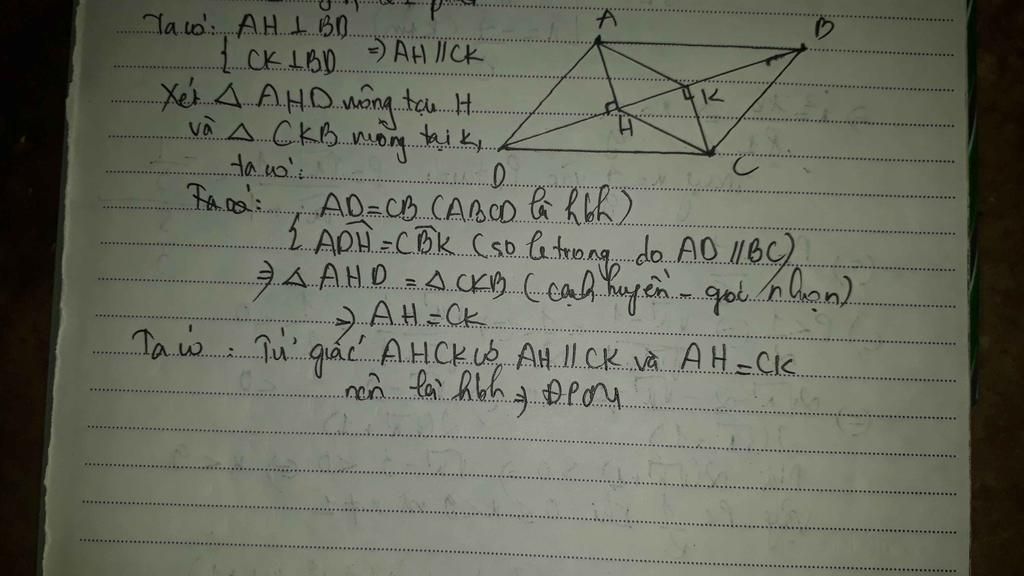 Ta có: AH ⊥ BD
{ CK ⊥ BD => AH // CK
Xét △ AHD vuông tại H
và △ CKB vuông tại K,
ta có:
Ta có: AD = CB (ABCD là hbh)
{ ADH = CBK (so le trong do AD // BC)
=> △ AHD = △ CKB (cạnh huyền - góc nhọn)
=> AH = CK
Ta có: Tứ giác AHCK có AH // CK và AH = CK
nên là hbh => ĐPCM
A
B
K
H
D
C